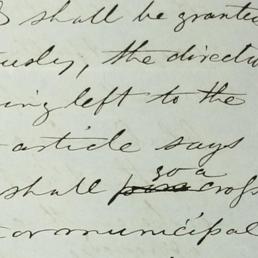 shall be granted
the direct
ing left to the
article says
go a
shall cross
or municipal